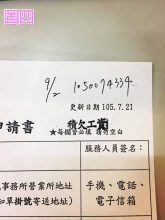 圖四
9/2 1050074334
更新日期 105.7.21
申請書
積欠工
★每欄皆必填 請勿空白
服務人員簽名:
事務所營業所地址
手機、電話、
單掛號寄送地址)
電子信箱